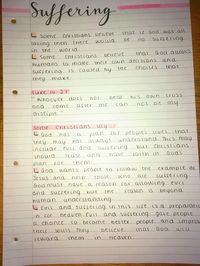 Suffering
Some Christians believe that if God was all
loving then there would be no suffering
in the world.
Some Christians believe that God allows
humans to make their own decisions and
suffering is caused by the choices that
they make.
Luke 14:27
"Whoever does not bear his own cross
and come after me can not be my
disciple"
Some Christians say...
God has a plan for people's lives that
they may not always understand. This may
include evil and suffering but Christians
should trust and have faith in God's
plan for them.
God wants people to follow the example of
Jesus and help those who are suffering
God must have a reason for allowing evil
and suffering but the reason is beyond
human understanding.
Evil and suffering in this life is a preparation
for heaven. Evil and suffering gave people
a chance to become better people and improve
their souls. They believe that God will
reward them in heaven